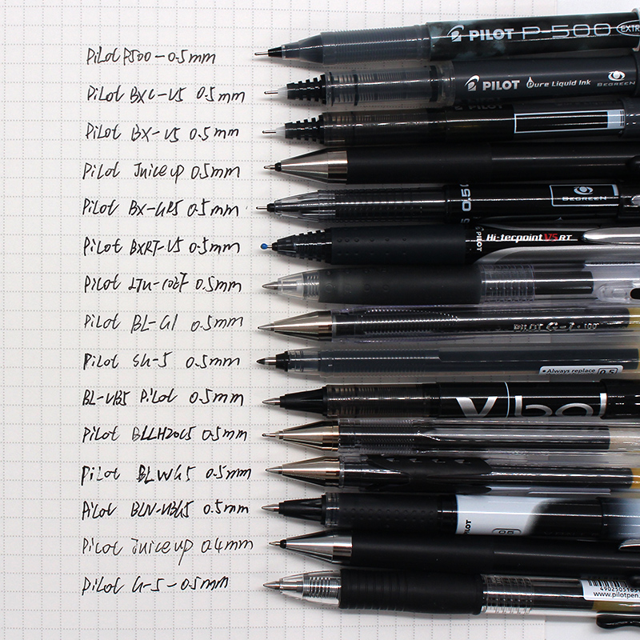 Pilot P500-0.5mm
PILOT P-500 EXTR
Pilot BXC-V5 0.5mm
PILOT Pure Liquid Ink BEGREEN
Pilot BX-V5 0.5mm
Pilot Juice up 0.5mm
Pilot BX-GR5 0.5mm
0.5 BEGREEN
Pilot BXRT-V5 0.5mm
PILOT Hi-tecpoint V5 RT
Pilot 0.5mm
Pilot BL-G1 0.5mm
PILOT
Pilot 0.5mm
Always replace 0.5
BL-VB5 Pilot 0.5mm
V bal
Pilot BLLH20C5 0.5mm
Pilot BLWG5 0.5mm
Pilot 0.5mm
PILOT
Pilot Juice up 0.4mm
Pilot G-5-0.5mm
www.pilotpen.